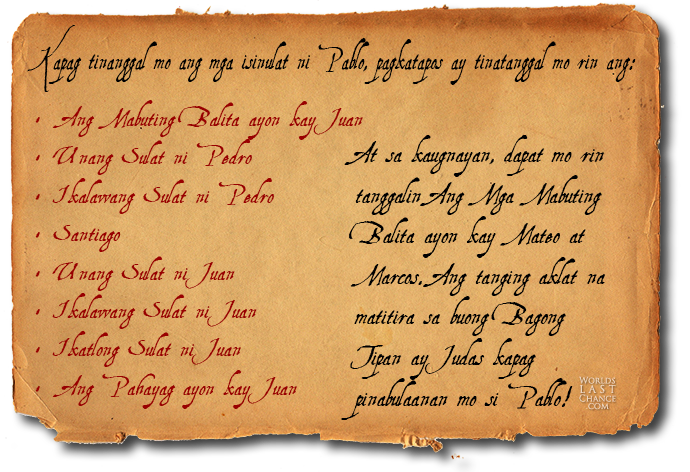 Kapag tinanggal mo ang mga isinulat ni Pablo, pagkatapos ay tinatanggal mo rin ang:
• Ang Mabuting Balita ayon kay Juan
• Unang Sulat ni Pedro
• Ikalawang Sulat ni Pedro
• Santiago
• Unang Sulat ni Juan
• Ikalawang Sulat ni Juan
• Ikatlong Sulat ni Juan
• Ang Pahayag ayon kay Juan
At sa kaugnayan, dapat mo rin
tanggalin Ang Mga Mabuting
Balita ayon kay Mateo at
Marcos. Ang tanging aklat na
matitira sa buong Bagong
Tipan ay Judas kapag
pinabulaanan mo si Pablo!
WORLDS
LAST
CHANCE
.COM